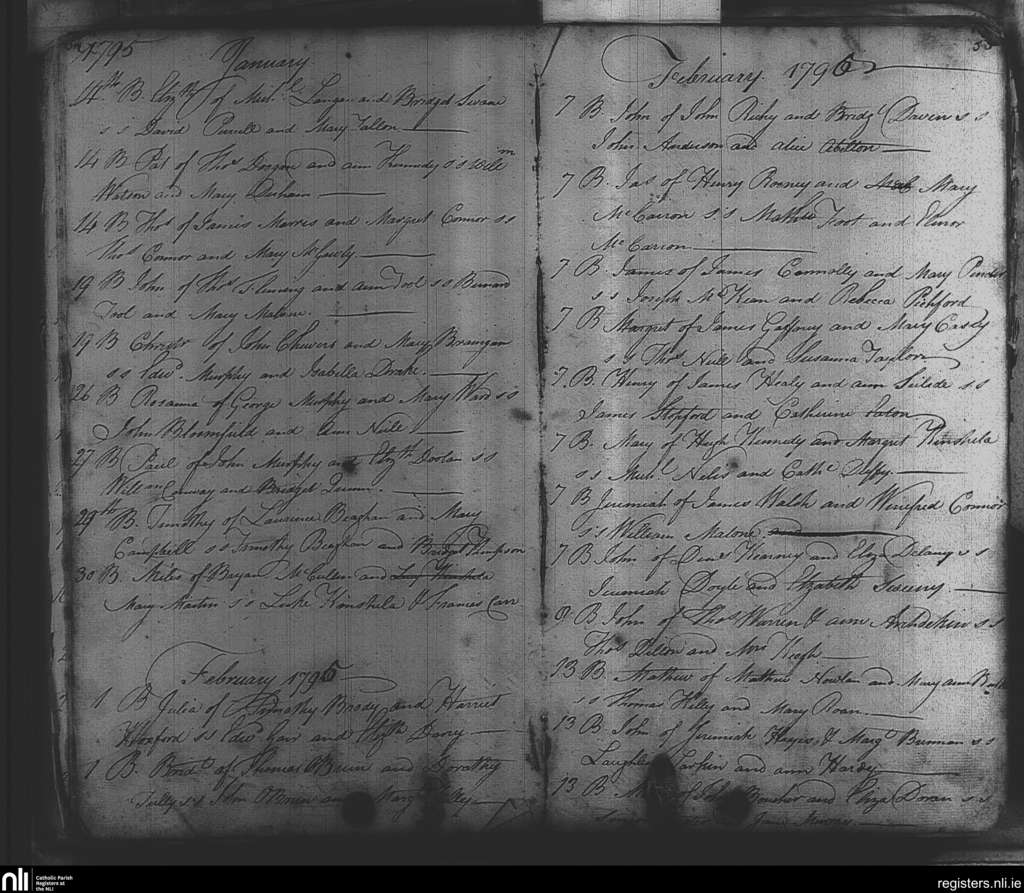 1795
January
14th B Elizth of Michl Langan and Bridget Swane
s s David Purcell and Mary Fallon
14 B Pat of Thos Gorgan and ann Kennedy s s Willm
Watson and Mary Durham
14 B Thos of James Morres and Margret Connor s s
Thos Connor and Mary McGuerly
19 B John of Thos Fleming and ann Tool s s Bernard
Tool and Mary Malone
19 B Christr of John Chevers and Mary Branngan
s s Edwd Murphy and Isabella Drake
26 B Rosanna of George Murphy and Mary Ward s s
John Bloomfield and Ann Neill
27 B Paul of John Murphy and Elizth Doolan s s
Willam Conway and Bridget Quinn
29th B. Timothey of Laurence Beaghan and Mary
Campbell s s Timothy Beaghan and Bridget Thompson
30 B. Miles of Bryan McCullen and
Mary Martin s s Luke Kinshela & Frances Carr
February 1796
1 B Julia of Timothy Brody and Harriet
Hloxford s s Edwd Carr and Elizth Darcy
1 B. Bridt of Thomas OBrien and Dorathy
Tully s s John OBrien and Margt
February 1796
7 B John of John Richy and Bridgt Daven s s
John Anderson and alice
7 B. Jas of Henry Rooney and Mary
McCarron s s Mathew Foot and Elinor
McCarron
7 B. James of James Connolly and Mary
s s Joseph McKean and Rebecca Pichford
7 B Margret of James Gaffney and Mary Casey
s s Thos Neill and Susanna Taylor
7. B. Henry of James Healy and ann s s
James Stopford and Catherine Eaton
7 B. Mary of Hugh Kennedy and Margret Kinshela
s s Michl Neles and Cathe Duffy
7 B Jeremiah of James Walsh and Winefred Connor
s s William Malone
7 B John of Denis Kearney and Eliza Delany s s
Jeremiah Doyle and Elizabeth Sweeny
8 B John of Thos Warren & ann Archdekin s s
Thos Dillon and Mrs Keogh
13 B. Mathew of Mathew Nowlan and Mary ann
s s Thomas Kelly and Mary Roan
13 B. John of Jeremiah Hayes & Margt Brennan s s
Laughlin Larkin and ann Hardy
13 B of John Boucher and Eliza Doran s s
Jane Murray
nli Catholic Parish
Registers at
the NLI
registers.nli.ie